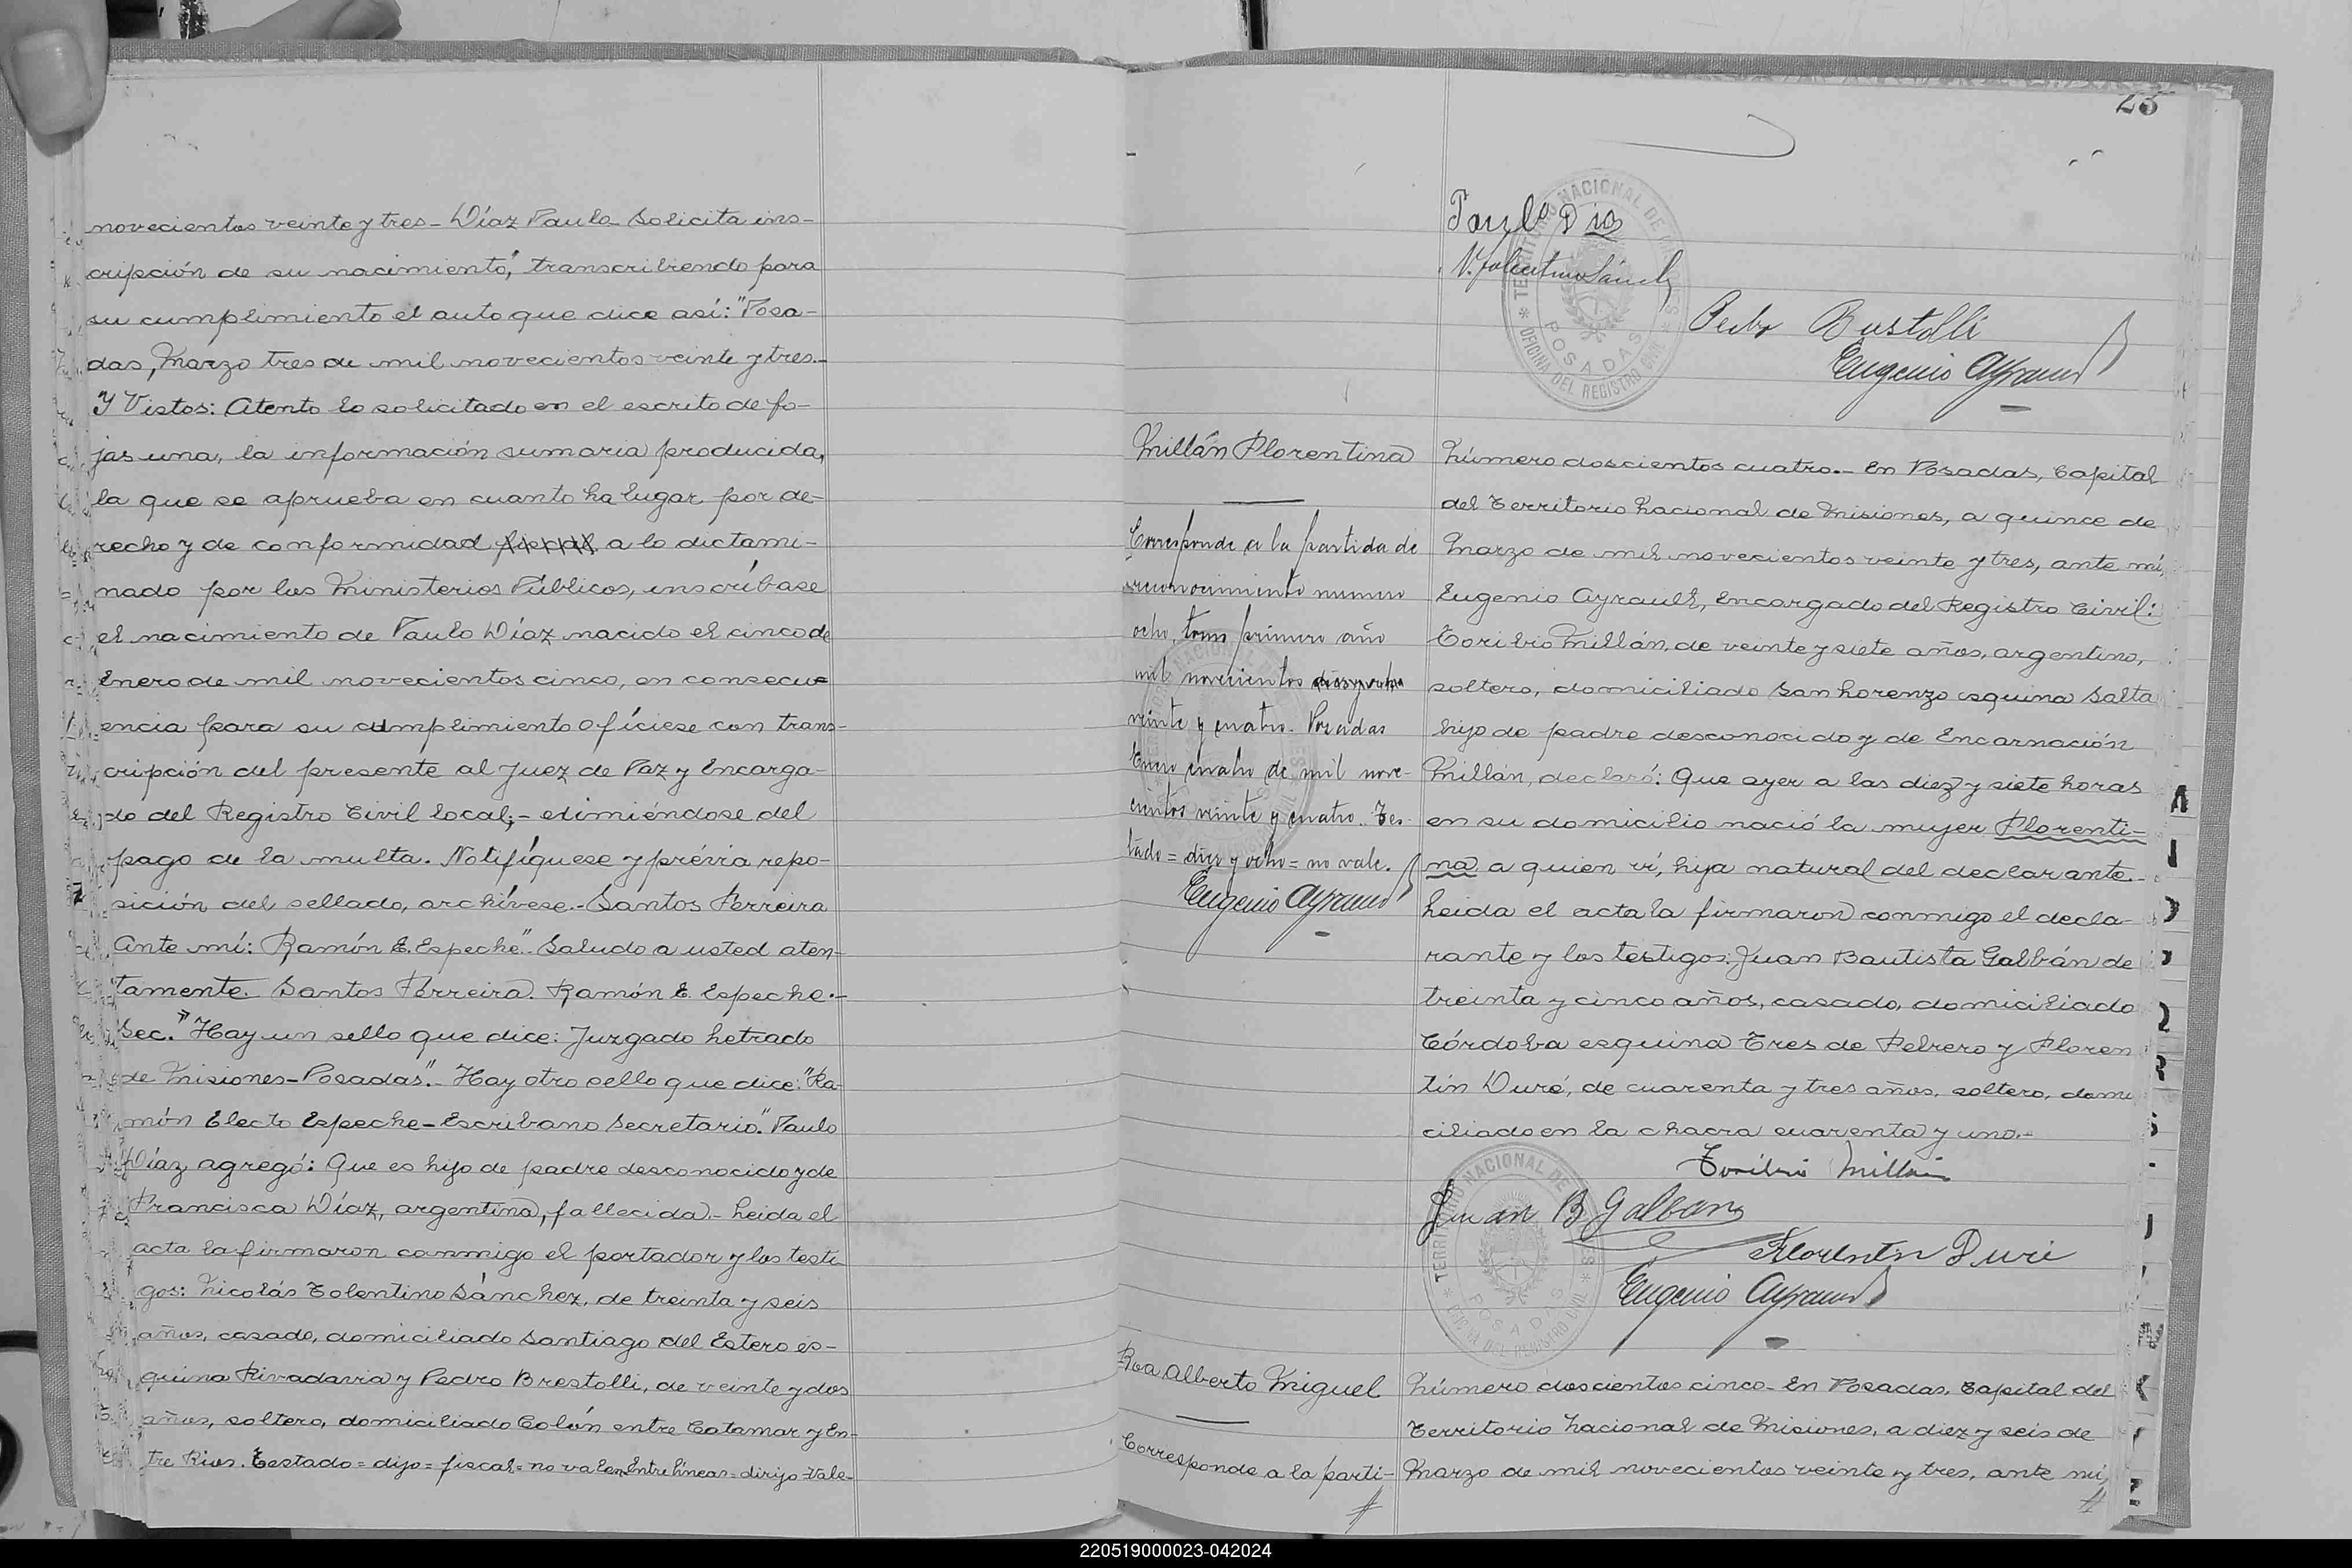 novecientos veinte y tres - Díaz Paulo - Solicita ins-
cripción de su nacimiento," transcribiendo para
su cumplimiento el auto que dice así: "Posa-
das, Marzo tres de mil novecientos veinte y tres.-
Y Vistos: Atento lo solicitado en el escrito de fo-
jas una, la información sumaria producida,
la que se aprueba en cuanto ha lugar por de-
recho y de conformidad fiscal a lo dictami-
nado por los Ministerios Públicos, inscríbase
el nacimiento de Paulo Díaz nacido el cinco de
Enero de mil novecientos cinco, en consecu-
encia para su cumplimiento ofíciese con trans-
cripción del presente al Juez de Paz y Encarga-
do del Registro Civil local;- eximiéndose del
pago de la multa. Notifíquese y prévia repo-
sición del sellado, archívese.- Santos Ferreira
Ante mí: Ramón E. Espeche". Saludo a usted aten-
tamente. Santos Ferreira. Ramón E. Espeche.-
Sec." Hay un sello que dice: Juzgado Letrado
de Misiones - Posadas".- Hay otro sello que dice: "Ra-
món Electo Espeche - Escribano Secretario." Paulo
Díaz agregó: Que es hijo de padre desconocido y de
Francisca Díaz, argentina, fallecida.- Leida el
acta la firmaron conmigo el portador y los testi-
gos: Nicolás Tolentino Sánchez, de treinta y seis
años, casado, domiciliado Santiago del Estero es-
quina Rivadavia y Pedro Brestolli, de veinte y dos
años, soltero, domiciliado Colón entre Catamar y En-
tre Rios. Testado = dijo = fiscal = no valen Entre líneas = dirijo = Vale-
23
N. Tolentino Sánch
Pedro Bustolli
Eugenio Ayrault
TERRITORIO NACIONAL DE MISIONES * OFICINA DEL REGISTRO CIVIL *
POSADAS
Millán Florentina
Corresponde a la partida de
reconocimiento numero
ocho, tomo primero año
mil novecientos diez y ocho
veinte y cuatro. Posadas
Enero cuatro de mil nove-
cientos veinte y cuatro. Tes-
tado = diez y ocho = no vale.
Eugenio Ayrault
Número doscientos cuatro.- En Posadas, Capital
del Territorio Nacional de Misiones, a quince de
Marzo de mil novecientos veinte y tres, ante mí,
Eugenio Ayrault, Encargado del Registro Civil:
Toribio Millán, de veinte y siete años, argentino,
soltero, domiciliado San Lorenzo esquina Salta
hijo de padre desconocido y de Encarnación
Millán, declaró: Que ayer a las diez y siete horas
en su domicilio nació la mujer Florenti-
na a quien ví, hija natural del declarante.-
Leida el acta la firmaron conmigo el decla-
rante y los testigos: Juan Bautista Galbán de
treinta y cinco años, casado, domiciliado
Córdoba esquina Tres de Febrero y Floren
tín Duré, de cuarenta y tres años, soltero, domi
ciliado en la chacra cuarenta y uno.-
Toribio Millán
Juan B Galban
Florentin Duré
Eugenio Ayrault
TERRITORIO NACIONAL DE MISIONES * OFICINA DEL REGISTRO CIVIL *
POSADAS
Roa Alberto Miguel
Corresponde a la parti-
Número doscientos cinco - En Posadas, Capital del
Territorio Nacional de Misiones, a diez y seis de
Marzo de mil novecientos veinte y tres, ante mí,
220519000023-042024